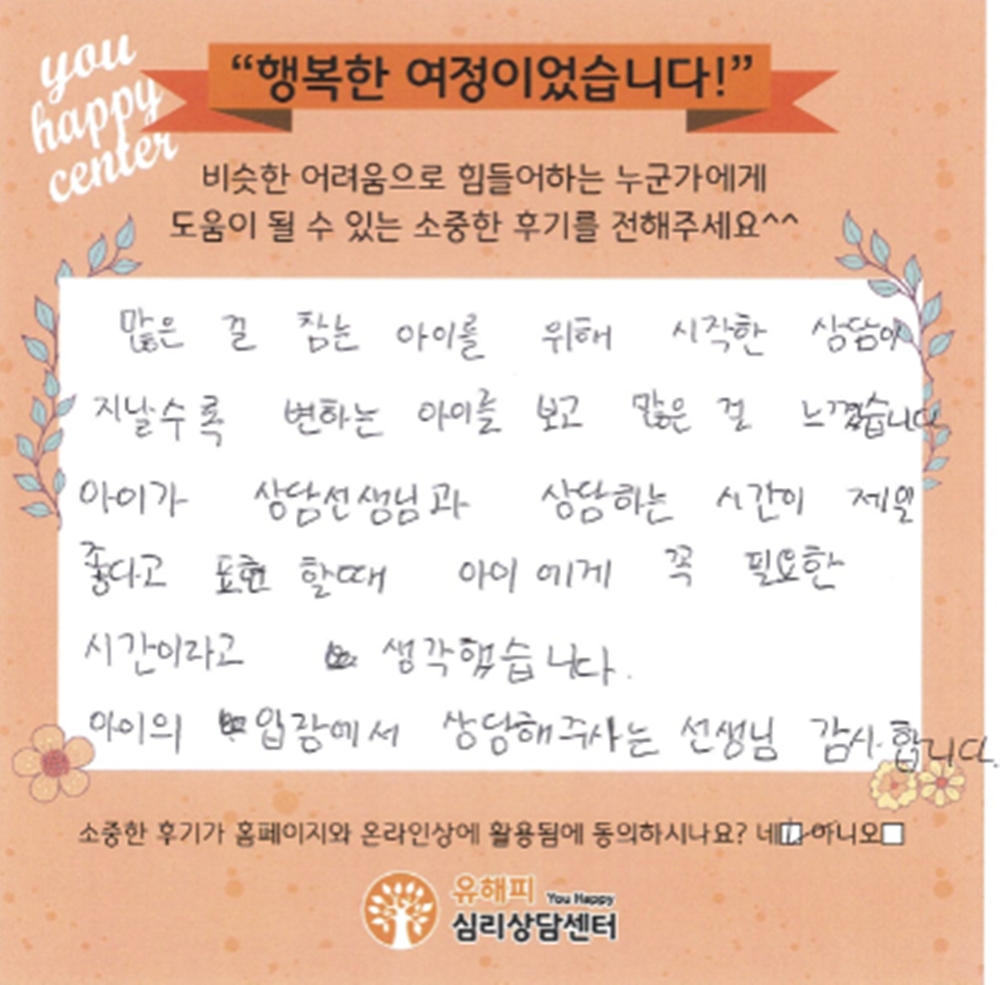 you
happy
center
“행복한 여정이었습니다!”
비슷한 어려움으로 힘들어하는 누군가에게
도움이 될 수 있는 소중한 후기를 전해주세요^^
많은 걸 참는 아이를 위해 시작한 상담이
지날수록 변하는 아이를 보고 많은 걸 느꼈습니다.
아이가 상담선생님과 상담하는 시간이 제일
좋다고 표현 할때 아이에게 꼭 필요한
시간이라고 생각했습니다.
아이의 입람에서 상담해주시는 선생님 감사합니다.
소중한 후기가 홈페이지와 온라인상에 활용됨에 동의하시나요? 네 아니오
유해피 You Happy
심리상담센터